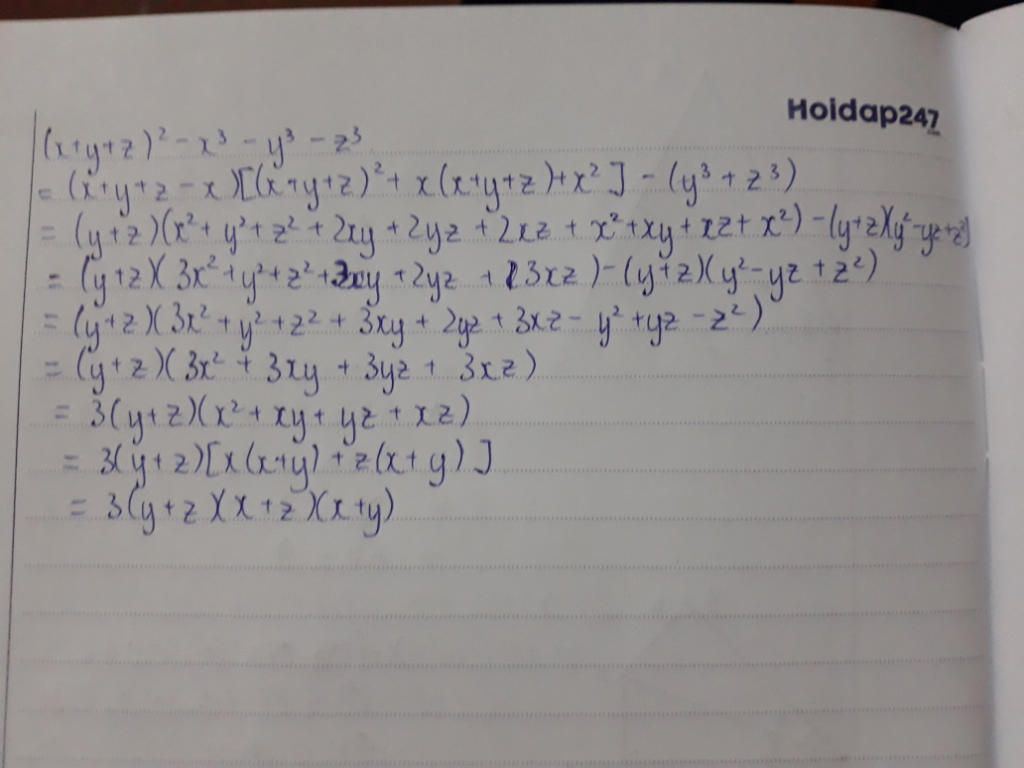 Hoidap247
(x+y+z)² - x³ - y³ - z³
= (x+y+z-x)[(x+y+z)² + x(x+y+z)+x²] - (y³+z³)
= (y+z)(x²+y²+z²+2xy+2yz+2xz+x²+xy+xz+x²) - (y+z)(y²-yz+z²)
= (y+z)(3x²+y²+z²+3xy+2yz+3xz) - (y+z)(y²-yz+z²)
= (y+z)(3x²+y²+z²+3xy+2yz+3xz-y²+yz-z²)
= (y+z)(3x²+3xy+3yz+3xz)
= 3(y+z)(x²+xy+yz+xz)
= 3(y+z)[x(x+y)+z(x+y)]
= 3(y+z)(x+z)(x+y)